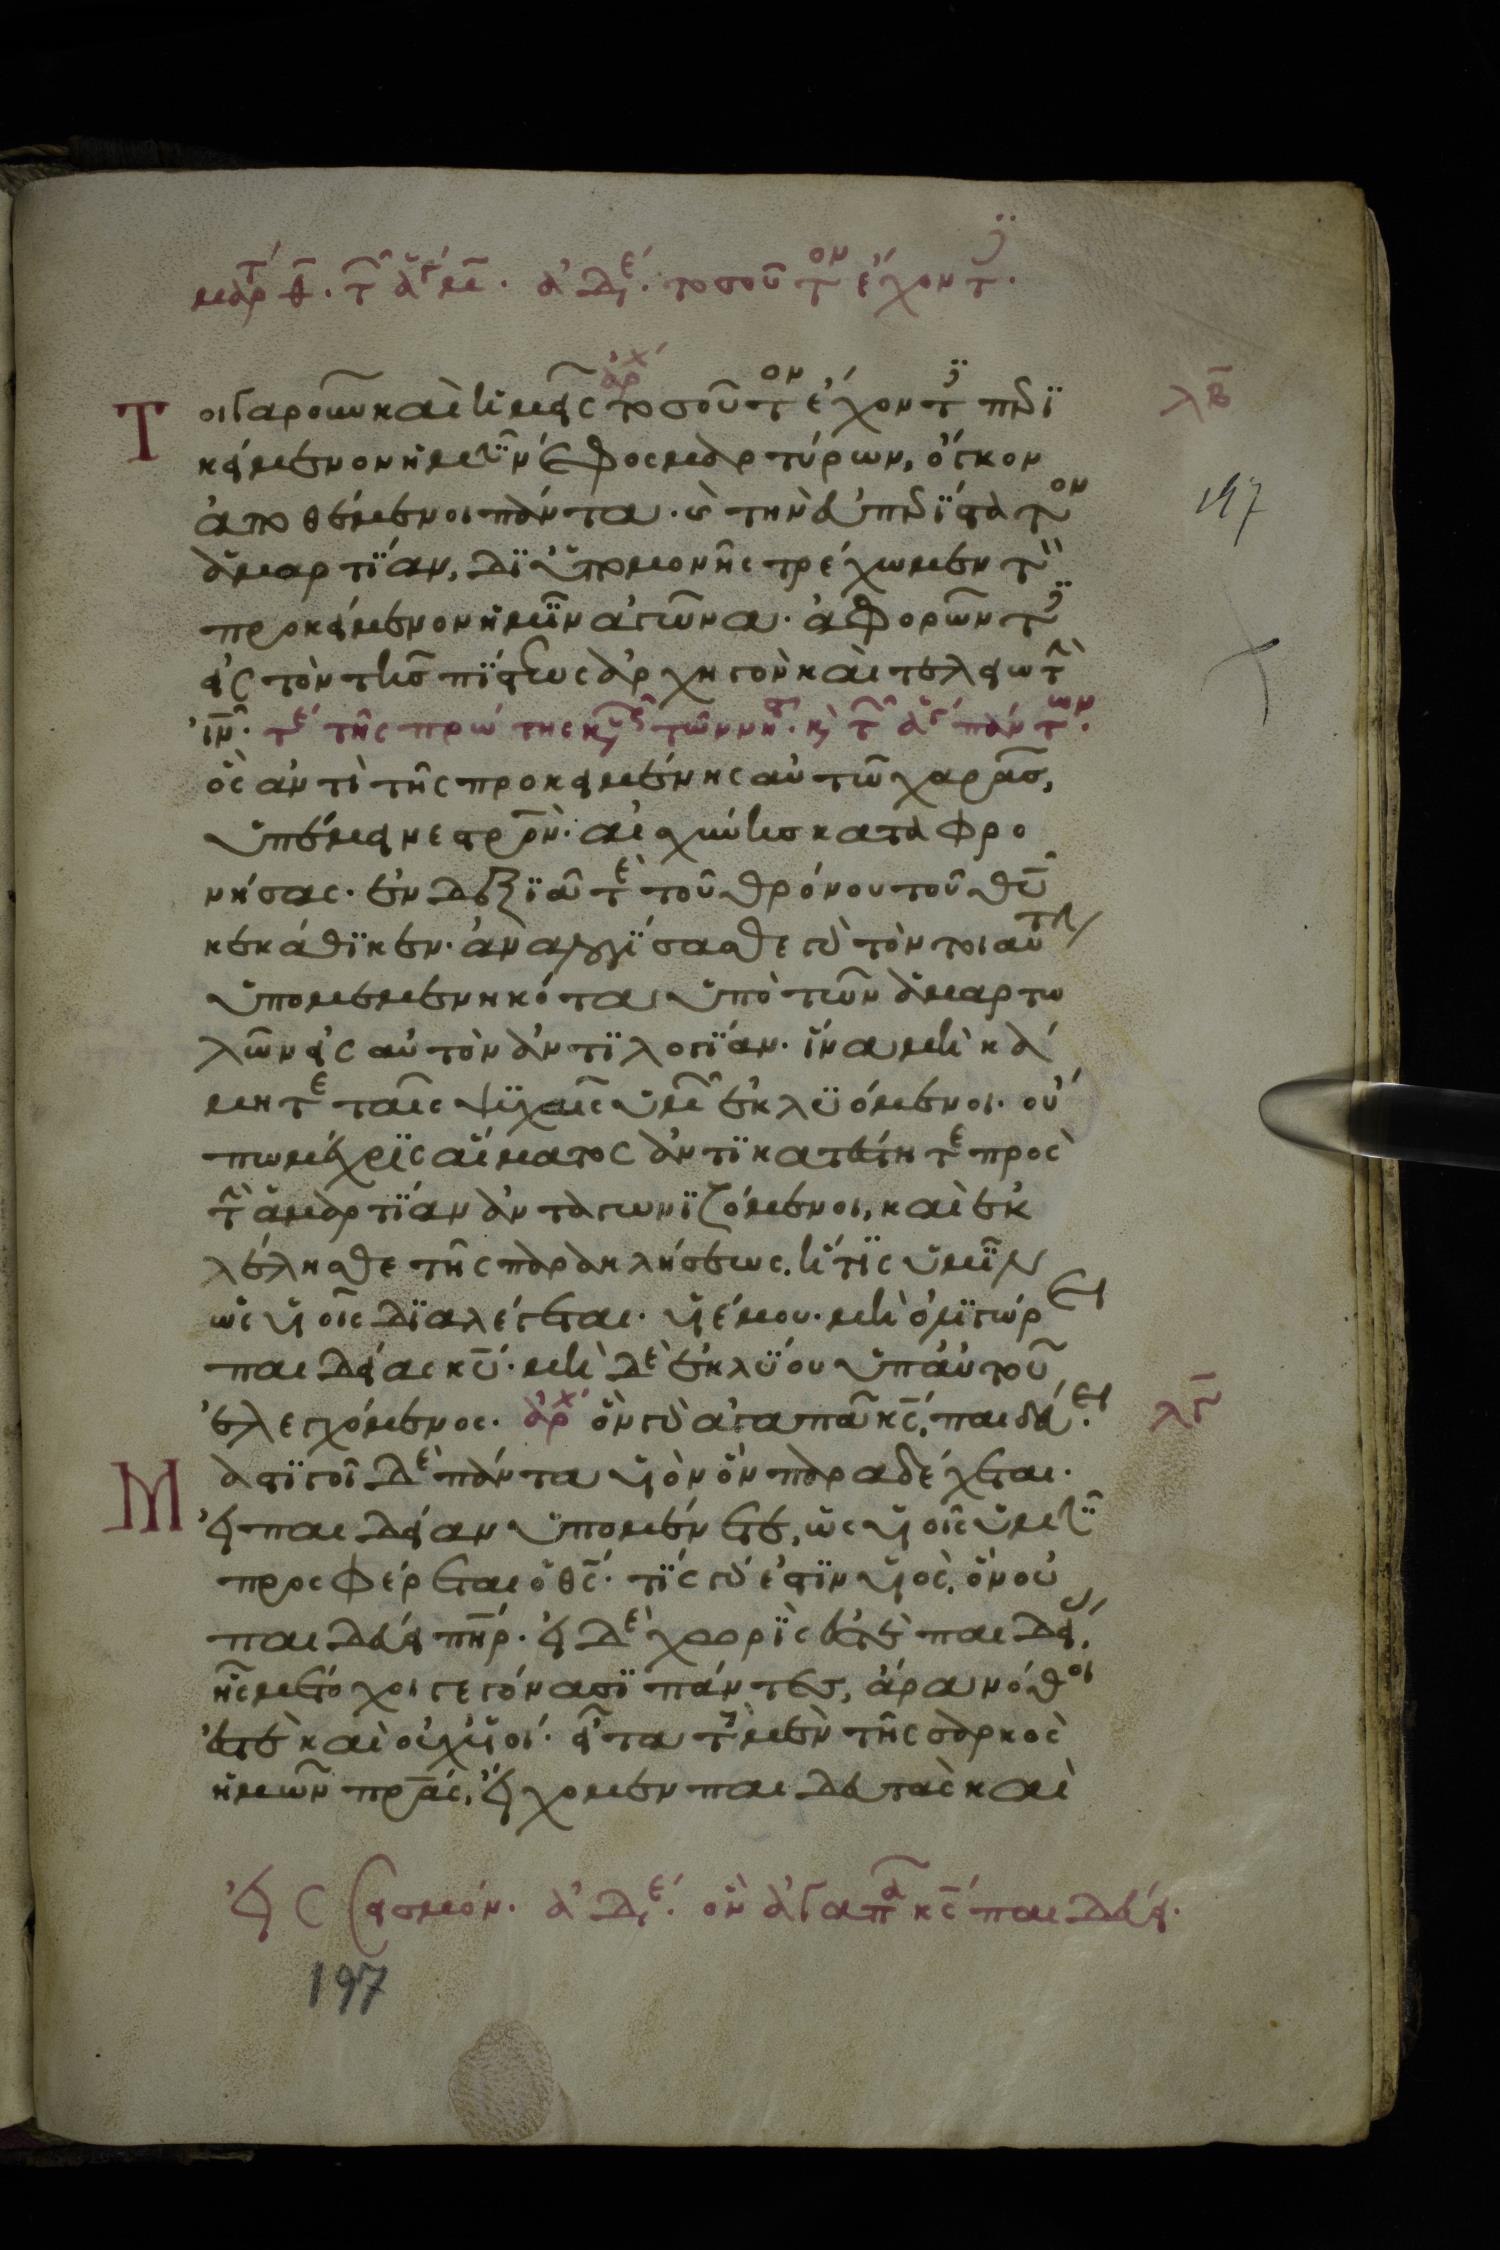 μαρτ θ. τ ἁγ μ. ἀδε. τοσοῦτον ἔχοντ.
λβ
Τοιγαροῦν καὶ ἡμεῖς ἀρχ τοσοῦτον ἔχοντες περϊ
κείμενον ἡμῖν νέφος μαρτύρων, ὄγκον
197
ἀποθέμενοι πάντα. καὶ τὴν εὐπερϊστατον
ἁμαρτϊαν, δϊ ὑπομονῆς τρέχωμεν τὸν
προκείμενον ἡμῖν ἀγῶνα. ἀφορῶντες
εἰς τὸν τῆς πϊστεως ἀρχηγὸν καὶ τελειωτὴν
ἰν. τε τῆς πρώτης κυ τῶν νηστ. κ τ ἁγ πάντων.
ὃς ἀντὶ τῆς προκειμένης αὐτῶ χαρᾶς,
ὑπέμεινε στρὸν. αἰσχύνης καταφρο
νήσας. ἐν δεξϊᾶ τε τοῦ θρόνου τοῦ θυ
κεκάθϊκεν. ἀναλογϊσασθε γὰ τὸν τοιαύτην
ὑπομεμενηκότα ὑπὸ τῶν ἁμαρτω
λῶν εἰς αὐτὸν ἀντϊλογϊαν. ἵνα μὴ κά
μητε ταῖς ψϋχαῖς ὑμῶν ἐκλϋόμενοι. οὔ
πω μέχρϊς αἵματος ἀντϊκατέστητε πρὸς
τὴν ἁμαρτϊαν ἀνταγωνϊζόμενοι, καὶ ἐκ
λέλησθε τῆς παρακλήσεως. ἥτϊς ὑμῖν
ὡς υἱοῖς δϊαλέγεται. υἱέ μου. μὴ ὀλϊγώρει
παιδείας κυ. μὴ δὲ ἐκλϋου ὑπ αὐτοῦ
ἐλεγχόμενος. ἀρχ ὃν γὰ ἀγαπᾶ κς, παιδεύει.
λγ
Μαστϊγοῖ δὲ πάντα υἱὸν ὃν παραδέχεται.
εἰ παιδείαν ὑπομένετε, ὡς υἱοῖς ὑμῖν
προσφέρεται ὁ θς. τϊς γὰ ἐστϊν υἱὸς, ὃν οὐ
παιδεύει πηρ. εἰ δὲ χωρϊς ἐστὲ παιδείας,
ἧς μέτοχοι γεγόνασϊ πάντες, ἄρα νόθοι
ἐστὲ καὶ οὐχ υἱοί. εἶτα τοὺς μὲν τῆς σαρκὸς
ἡμῶν πρας, εἴχομεν παιδευτὰς καὶ
εἰς σεισμόν. ἀδε. ὃν ἀγαπᾶ κς παιδεύει.
197